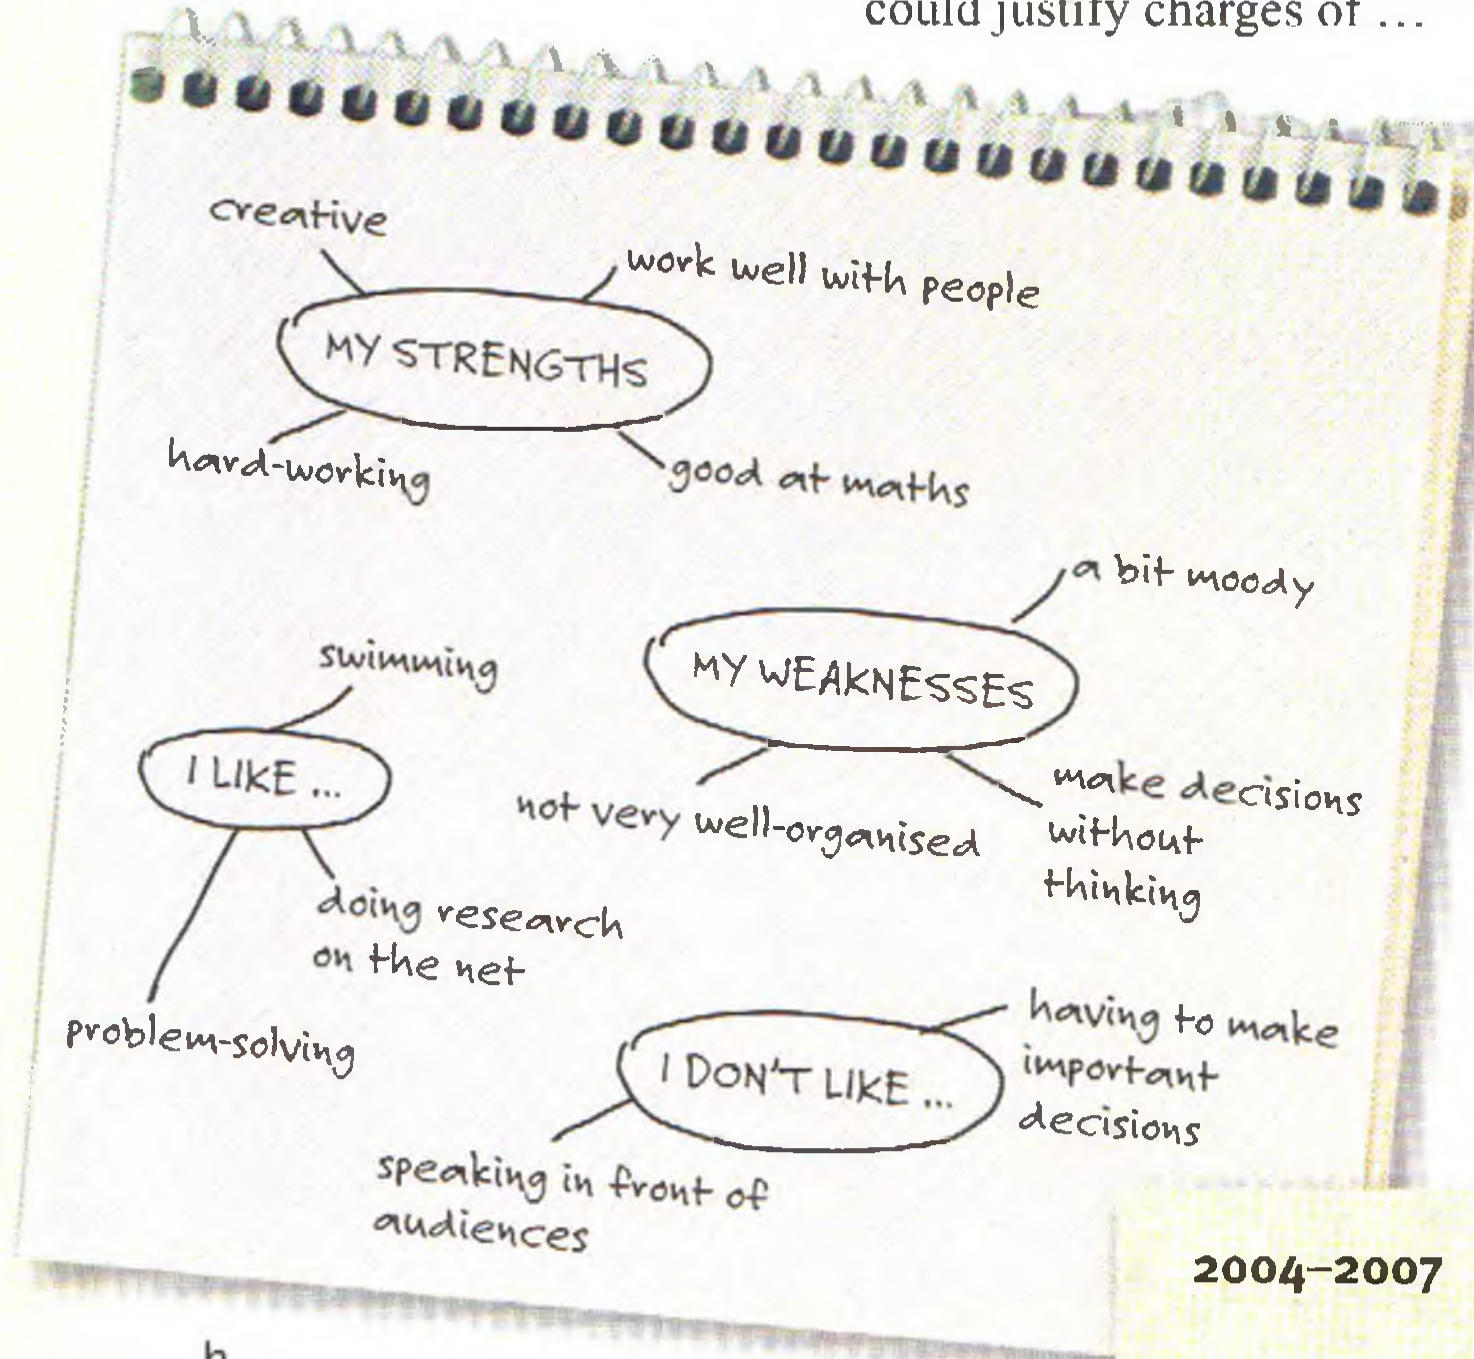 could justify charges of ...
creative
work well with people
MY STRENGTHS
hard-working
good at maths
a bit moody
MY WEAKNESSES
not very well-organised
make decisions
without
thinking
swimming
I LIKE ...
doing research
on the net
problem-solving
having to make
important
decisions
I DON'T LIKE ...
speaking in front of
audiences
2004–2007
h